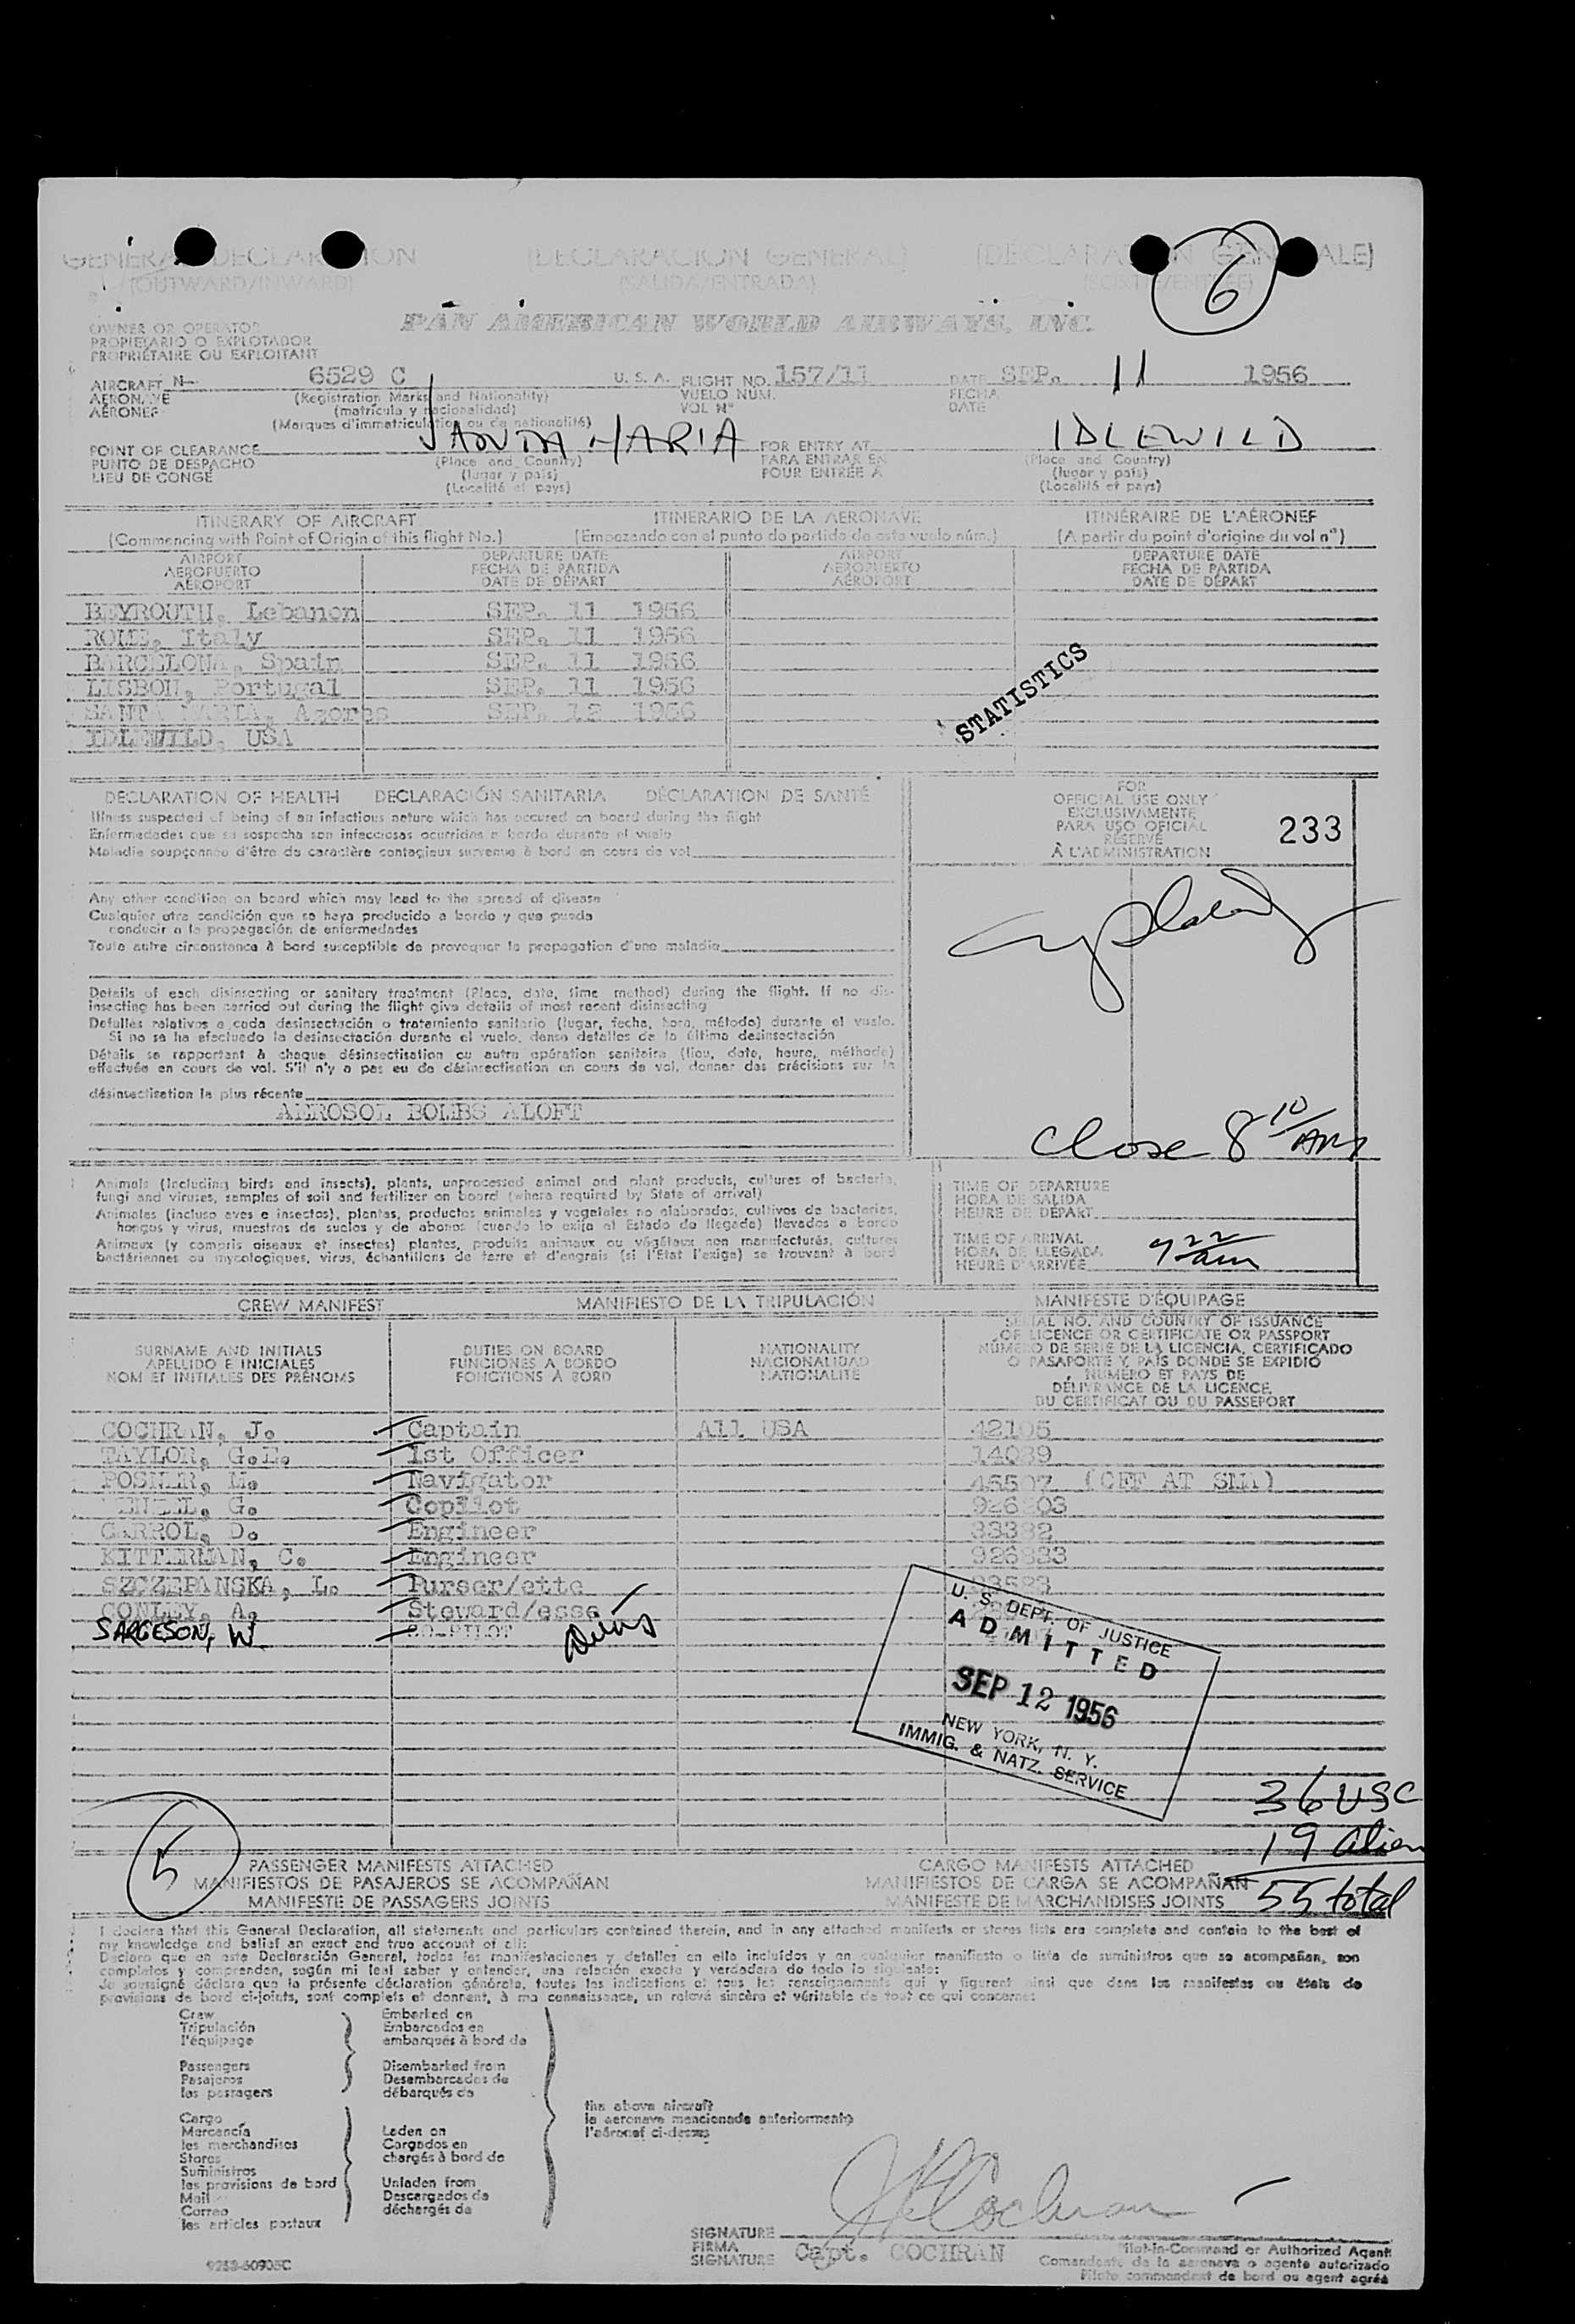 GENERAL DECLARATION (DECLARACION GENERAL) (DECLARATION GENERALE)
(OUTWARD/INWARD) (SALIDA/ENTRADA) (SORTIE/ENTRÉE)
6
OWNER OR OPERATOR
PROPIETARIO O EXPLOTADOR
PROPRIÉTAIRE OU EXPLOITANT
PAN AMERICAN WORLD AIRWAYS, INC.
AIRCRAFT N- 6529 C U. S. A. FLIGHT NO. 157/11 DATE SEP. 11 1956
AERONAVE (Registration Marks and Nationality) VUELO NUM. FECHA
AÉRONEF (matrícula y nacionalidad) VOL Nº DATE
(Marques d'immatriculation ou de nationalité)
POINT OF CLEARANCE SANTA MARIA FOR ENTRY AT IDLEWILD
PUNTO DE DESPACHO (Place and Country) PARA ENTRAR EN (Place and Country)
LIEU DE CONGÉ (lugar y país) POUR ENTRÉE À (lugar y país)
(Localité et pays) (Localité et pays)
ITINERARY OF AIRCRAFT ITINERARIO DE LA AERONAVE ITINÉRAIRE DE L'AÉRONEF
(Commencing with Point of Origin of this flight No.) (Empezando con el punto de partida de este vuelo núm.) (A partir du point d'origine du vol nº)
AIRPORT DEPARTURE DATE AIRPORT DEPARTURE DATE
AEROPUERTO FECHA DE PARTIDA AEROPUERTO FECHA DE PARTIDA
AÉROPORT DATE DE DÉPART AÉROPORT DATE DE DÉPART
BEYROUTH, Lebanon SEP. 11 1956
ROME, Italy SEP. 11 1956
BARCELONA, Spain SEP. 11 1956
LISBON, Portugal SEP. 11 1956
SANTA MARIA, Azores SEP. 12 1956
IDLEWILD, USA
STATISTICS
DECLARATION OF HEALTH DECLARACIÓN SANITARIA DÉCLARATION DE SANTÉ
Illness suspected of being of an infectious nature which has occured on board during the flight
Enfermedades que se sospecha son infecciosas ocurridas a bordo durante el vuelo
Maladie soupçonnée d'être de caractère contagieux survenue à bord en cours de vol
FOR
OFFICIAL USE ONLY
EXCLUSIVAMENTE
PARA USO OFICIAL
RÉSERVÉ
À L'ADMINISTRATION
233
Any other condition on board which may lead to the spread of disease
Cualquier otra condición que se haya producido a bordo y que pueda
conducir a la propagación de enfermedades
Toute autre circonstance à bord susceptible de provoquer la propagation d'une maladie
Details of each disinsecting or sanitary treatment (Place, date, time method) during the flight. If no dis-
insecting has been carried out during the flight give details of most recent disinsecting
Detalles relativos a cada desinsectación o tratamiento sanitario (lugar, fecha, hora, método) durante el vuelo.
Si no se ha efectuado la desinsectación durante el vuelo, dense detalles de la última desinsectación
Détails se rapportant à chaque désinsectisation ou autre opération sanitaire (lieu, date, heure, méthode)
effectuée en cours de vol. S'il n'y a pas eu de désinsectisation en cours de vol, donner des précisions sur la
désinsectisation la plus récente
AEROSOL BOMBS ALOFT
Close 8 10/AM
Animals (including birds and insects), plants, unprocessed animal and plant products, cultures of bacteria,
fungi and viruses, samples of soil and fertilizer on board (where required by State of arrival)
Animales (incluso aves e insectos), plantas, productos animales y vegetales no elaborados, cultivos de bacterias,
hongos y virus, muestras de suelos y de abonos (cuando lo exija el Estado de llegada) llevados a bordo
Animaux (y compris oiseaux et insectes) plantes, produits animaux ou végétaux non manufacturés, cultures
bactériennes ou mycologiques, virus, échantillons de terre et d'engrais (si l'État l'exige) se trouvant à bord
TIME OF DEPARTURE
HORA DE SALIDA
HEURE DE DÉPART
TIME OF ARRIVAL
HORA DE LLEGADA 7 22 am
HEURE D'ARRIVÉE
CREW MANIFEST MANIFIESTO DE LA TRIPULACIÓN MANIFESTE D'ÉQUIPAGE
SURNAME AND INITIALS
APELLIDO E INICIALES
NOM ET INITIALES DES PRÉNOMS
DUTIES ON BOARD
FUNCIONES A BORDO
FONCTIONS À BORD
NATIONALITY
NACIONALIDAD
NATIONALITÉ
SERIAL NO. AND COUNTRY OF ISSUANCE
OF LICENCE OR CERTIFICATE OR PASSPORT
NÚMERO DE SERIE DE LA LICENCIA, CERTIFICADO
O PASAPORTE Y PAÍS DONDE SE EXPIDIÓ
NUMÉRO ET PAYS DE
DÉLIVRANCE DE LA LICENCE,
DU CERTIFICAT OU DU PASSEPORT
COCHRAN, J. Captain All USA 42105
TAYLOR, G.E. 1st Officer 14089
POSNER, M. Navigator 45507 (OFF AT SMA)
G. Copilot
CARROL, D. Engineer 33382
KITTERMAN, C. Engineer 926833
SZCZEPANSKA, L. Purser/ette
CONLEY, A. Steward/ess
SARGESON, W. CO-PILOT
U. S. DEPT. OF JUSTICE
ADMITTED
SEP 12 1956
NEW YORK, N. Y.
IMMIG. & NATZ. SERVICE
36 USC
19 alien
55 total
5
PASSENGER MANIFESTS ATTACHED CARGO MANIFESTS ATTACHED
MANIFIESTOS DE PASAJEROS SE ACOMPAÑAN MANIFIESTOS DE CARGA SE ACOMPAÑAN
MANIFESTE DE PASSAGERS JOINTS MANIFESTE DE MARCHANDISES JOINTS
I declare that this General Declaration, all statements and particulars contained therein, and in any attached manifests or stores lists are complete and contain to the best of
my knowledge and belief an exact and true account of all:
Declaro que en esta Declaración General, todas las manifestaciones y detalles en ella incluídos y en cualquier manifiesto o lista de suministros que se acompañan, son
completos y comprenden, según mi leal saber y entender, una relación exacta y verdadera de todo lo siguiente:
Je soussigné déclare que la présente déclaration générale, toutes les indications et tous les renseignements qui y figurent ainsi que dans les manifestes ou états de
provisions de bord ci-joints, sont complets et donnent, à ma connaissance, un relevé sincère et véritable de tout ce qui concerne:
Crew Embarked on
Tripulación Embarcados en
l'équipage embarqués à bord de
Passengers Disembarked from
Pasajeros Desembarcados de
les passagers débarqués de
the above aircraft
la aeronave mencionada anteriormente
l'aéronef ci-dessus
Cargo
Mercancía Laden on
les marchandises Cargados en
Stores chargés à bord de
Suministros
les provisions de bord Unladen from
Mail Descargados de
Correo déchargés de
les articles postaux
JH Cochran
SIGNATURE
FIRMA
SIGNATURE Capt. COCHRAN
Pilot-in-Command or Authorized Agent
Comandante de la aeronave o agente autorizado
Pilote commandant de bord ou agent agréé